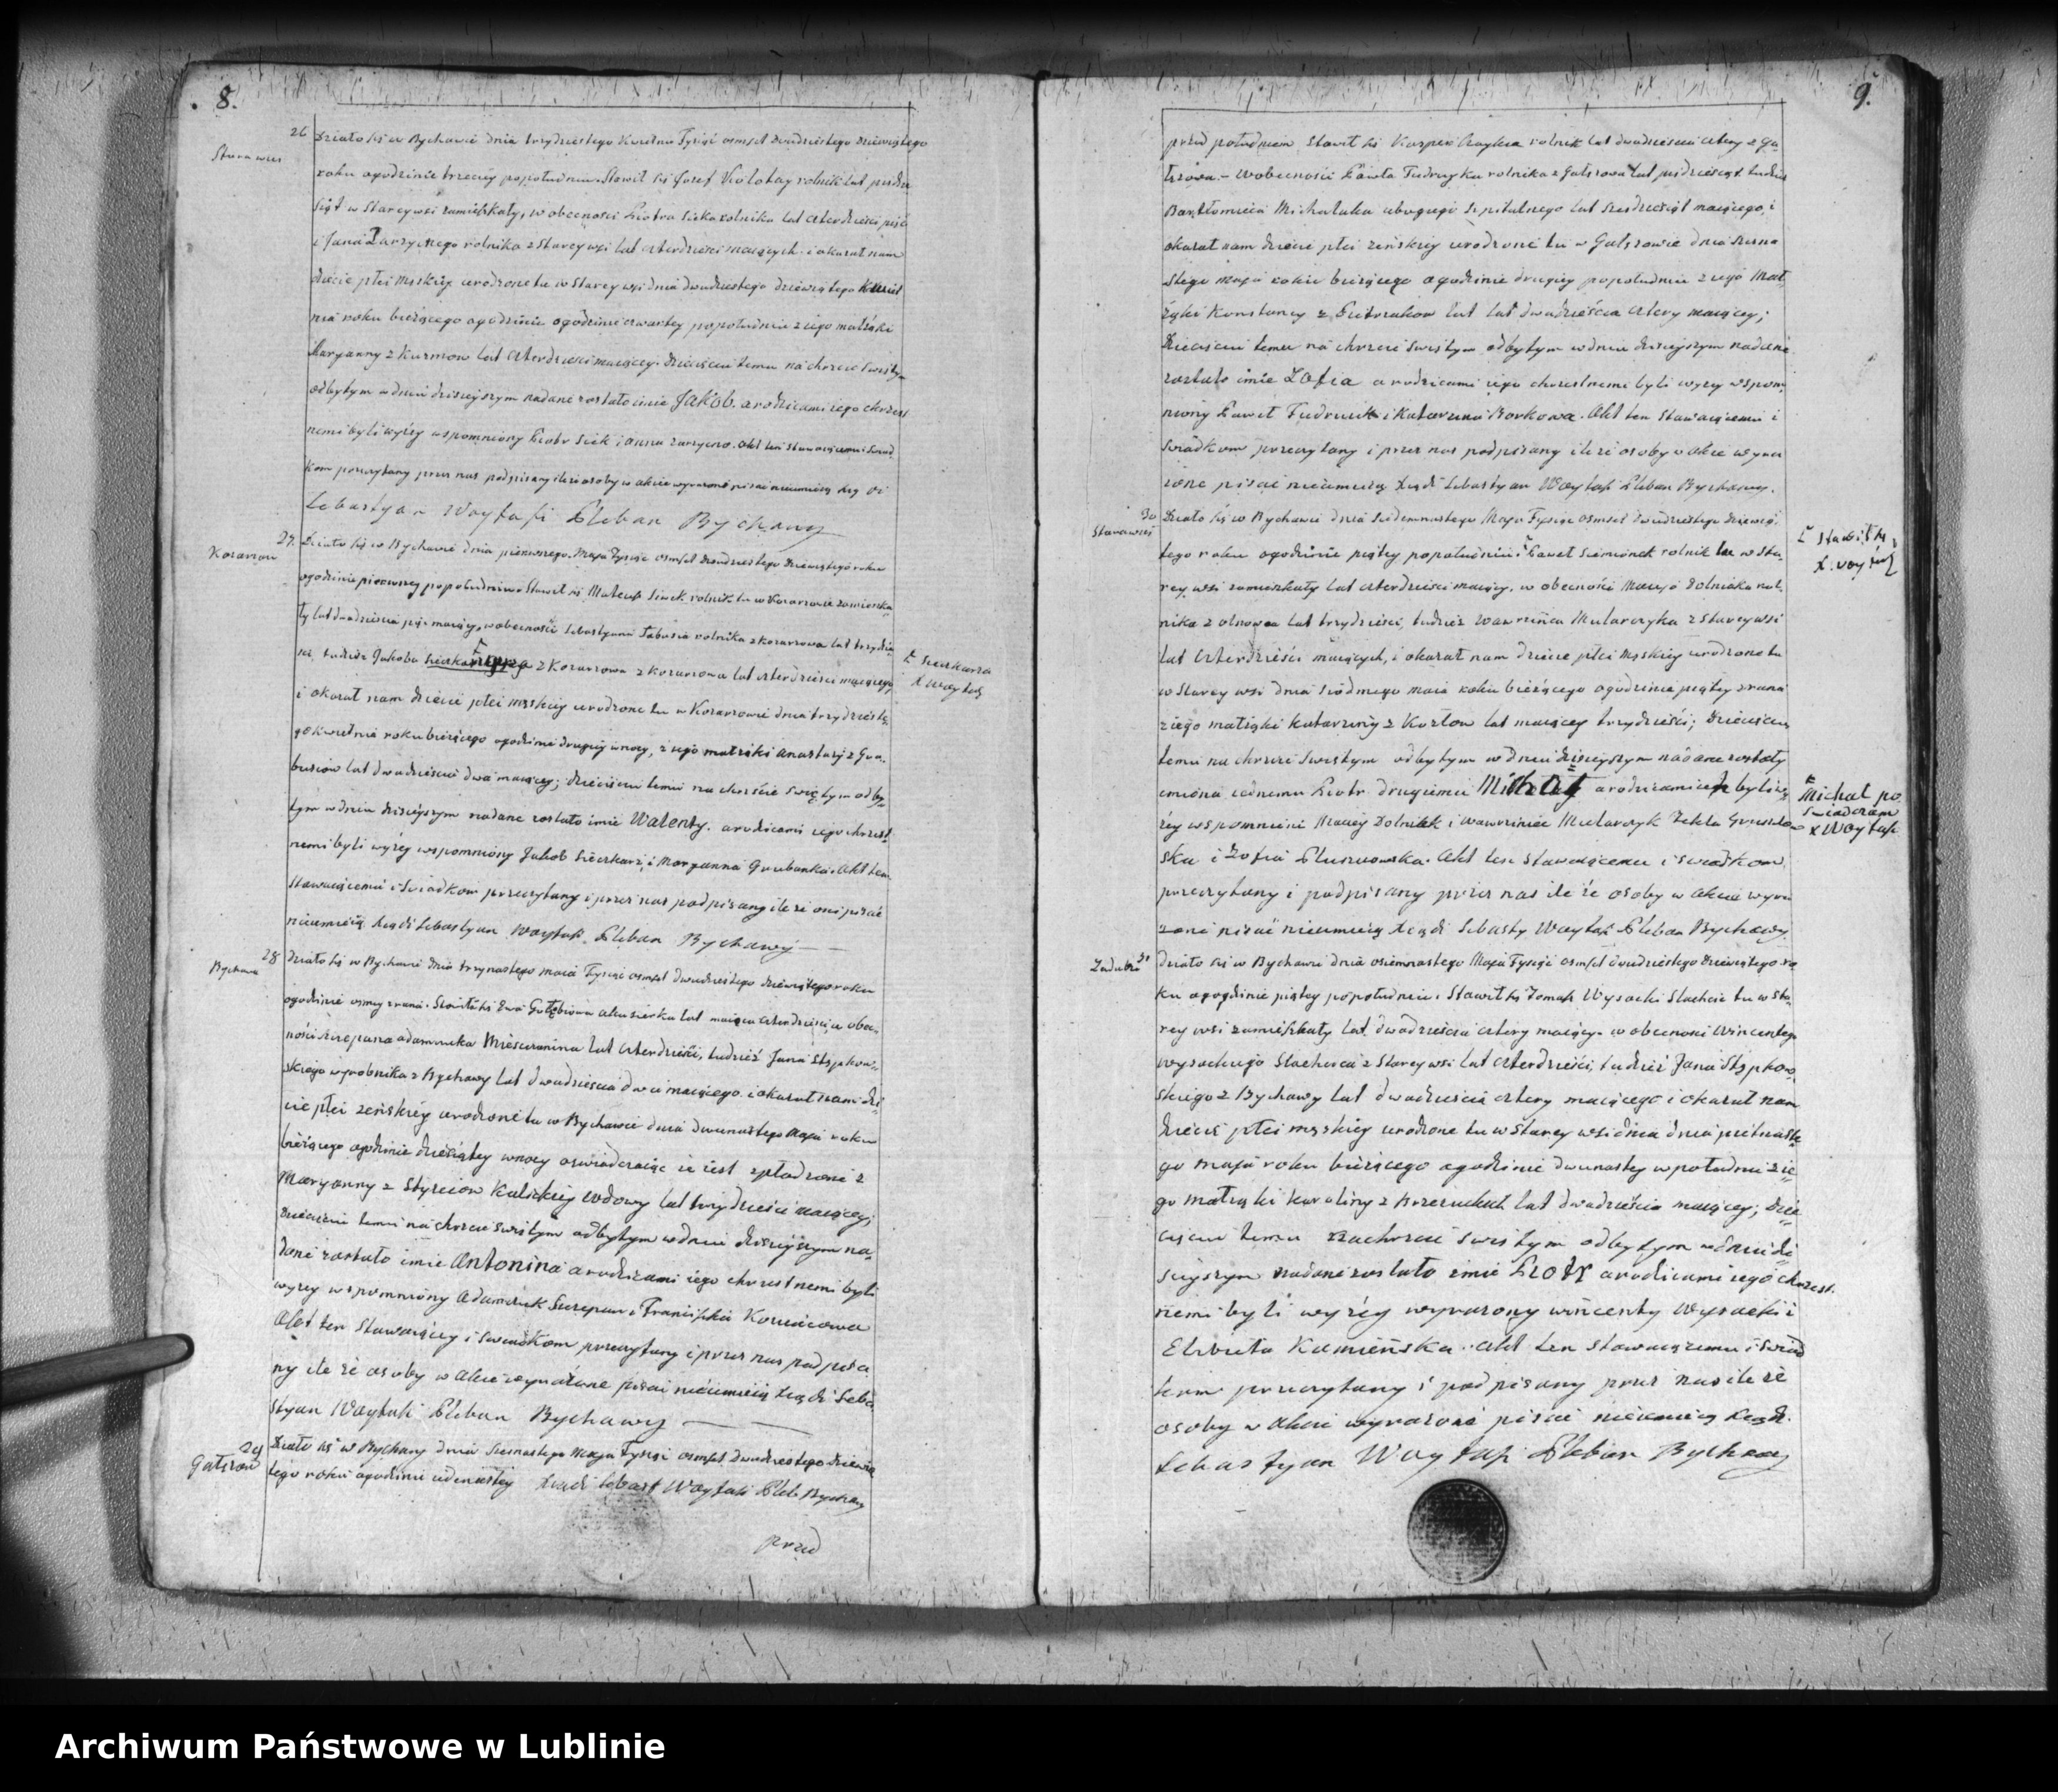 8.
26
Stara wies
Działo się w Bychawie dnia trzydziestego Kwietnia Tysiąc osmset dwudziestego dziewiątego
roku ogodzinie trzeciey popołudniu. Stawił się Jozef Kołotay rolnik lat pięćdzie
siąt w Stareywsi zamieszkały, w obecnosci Piotra Sieka rolnika lat czterdziesci pięć
i Jana Zarzycznego rolnika z Stareywsi lat czterdziesci maiących. i okazał nam
dziecie płci męskiey urodzone tu w Starey wsi dnia dwudziestego dziewiątego Kwiet
nia roku bieżącego ogodzinie ogodzinie czwartey popołudniu z iego małżąki
Maryanny z Kuzmow lat czterdziesci maiącey. Dziecięciu temu na chrzcie swięty
odbytym w dniu dzisieyszym nadane zostało imie JAKÓB. a rodzicami iego chrzest
nemi byli wyżey wspomniony Piotr Siek i Anna Zarzyczno. Akt ten stawaiącemu i swiad
kom przeczytany przez nas podpisany ile że osoby w akcie wyrażone pisac nieumieią
Sebastyan Woytasi Pleban Bychawy
27.
Kozarzow
Działo się w Bychawie dnia pierwszego Maja Tysiąc osmset dwudziestego dziewiątego roku
ogodzinie pierwszey popołudniu Stawił się Mateusz Siwek rolnik tu w Kozarzowie zamieszka
ły lat dwadziescia pięc maiący, w obecnosci Sebastyana Tabasia rolnika z Kozarzowa lat trzydzie
sci tudzież Jakoba z Kozarzowa z Kozarzowa lat czterdziesci maiącego,
i okazał nam dziecie płci męskiey urodzone tu w Kozarzowie dnia trzydzieste
go kwietnia roku bieżącego ogodzinie drugiey wnocy, z iego małżąki Anastazyi z Gra
busiow lat dwadziescia dwa maiącey; dziecięciu temu na chrzcie swiętym odby
tym w dniu dzisieyszym nadane zostało imie Walenty. a rodzicami iego chrzest
nemi byli wyżey wspomniony Jakob Sieczkarz, i Maryanna Grubanka. Akt ten
stawaiącemu i Swiadkom przeczytany i przez nas podpisany ile że oni pisać
nieumieią Xiądz Sebastyan Woytasi Pleban Bychawy
Sieczkarza
X Woytas
28
Bychawa
Działo się w Bychawie dnia trzynastego maia Tysiąc osmset dwudziestego dziewiątego roku
ogodzinie osmey zrana. Stawiła się Ewa Gołębiowa akuszerka lat maiąca czterdziesci w obec
nosci Szczepana Adamczuka Mieszczanina lat czterdziesci, tudzież Jana Stępkow
skiego wyrobnika z Bychawy lat dwadziescia dwa maiącego. i okazał nam dzie
cie płci zeńskiey urodzone tu w Bychawie dnia dwunastego Maja roku
bieżącego ogodzinie dziesiątey wnocy oswiadczaiąc że iest spłodzone z
Maryanny z Styrciow Kulickiey wdowy lat trzydziesci maiącey;
dziecięciu temu na chrzcie swiętym odbytym w dniu dzisieyszym na
dane zostało imie Antonina a rodzicami iego chrzestnemi byli
wyżey wspomniony Adamczuk Szczepan i Franciszka
Akt ten stawaiącey i swiadkom przeczytany i przez nas podpisa
ny ile że osoby w Akcie wyrażone pisac nieumieią Xiądz Seba
styan Woytasi Pleban Bychawy
29
Gałęzow
Działo się w Bychawy dnia szesnastego Maja Tysiąc osmset dwudziestego dziewią
tego roku ogodzinie iedenastey Xiądz Sebast Woytasi Pleb Bychawy
przed
9.
przed południem Stawił się Kasper rolnik lat dwadziescia cztery z Ga
łęzowa. Wobecnosci Pawła Fudrzyka rolnika z Gałęzowa lat pięćdziesiąt tudzież
Bartłomieia Michaluka ubogiego Szpitalnego lat szesdziesiąt maiącego, i
okazał nam dziecie płci zeńskiey urodzone tu w Gałęzowie dnia szesna
stego maja roku bieżącego ogodzinie drugiey popołudniu z iego Mał
żąki Konstancy z Pietrzakow lat lat dwadziescia cztery maiącey;
Dziecięciu temu na chrzcie swiętym odbytym w dniu dzisieyszym nadane
zostało imie Zofia a rodzicami iego chrzestnemi byli wyżey wspom
niony Paweł i Katarzyna Borkowa. Akt ten stawaiącemu i
Swiadkom przeczytany i przez nas podpisany ile że osoby w akcie wyra
żone pisac nieumieią Xiądz Sebastyan Woytasi Pleban Bychawy.
30
Starawies
Działo się w Bychawie dnia siedemnastego Maja Tysiąc osmset dwudziestego dziewią
tego roku ogodzinie piątey popołudniu Paweł Siemionek rolnik tu w Sta
rey wsi zamieszkały lat czterdziesci maiący, w obecnosci Macieja Dolniaka rol
nika z Olszowca lat trzydziesci, tudzież Wawrzińca Mularczyka z Stareywsi
lat czterdziesci maiących, i okazał nam dziecie płci męskiey urodzone tu
w Starey wsi dnia siódmego maia roku bieżącego ogodzinie piątey zrana
z iego małżąki Katarzyny z Kozłow lat maiącey trzydziesci; dziecięciu
temu na chrzcie swiętym odbytym w dniu dzisieyszym nadane zostały
imiona iednemu Piotr drugiemu Michał a rodzicami ich byli wy
żey wspomnieni Maciey Dolniak i Wawrziniec Mularczyk Tekla
ska i Zofia Pluszowska. Akt ten stawaiącemu i swiadkom
przeczytany i podpisany przez nas ile że osoby w akcie wyra
żone pisać nieumieią Xiądz Sebasty Woytasi Pleban Bychawy.
Stawił się
X. Woytas
Michał po
swiadczam
X Woytasi
31
Zadubie
Działo się w Bychawie dnia osiemnastego Maja Tysiąc osmset dwudziestego dziewiątego ro
ku ogodzinie piątey popołudniu. Stawił się Tomasz Wysocki Slachcic tu w Sta
rey wsi zamieszkały lat dwadziescia cztery maiący. w obecnosci Wincentego
Wysockiego Slachcica z Stareywsi lat czterdziesci, tudzież Jana Stępkow
skiego z Bychawy lat dwadziescia cztery maiącego i okazał nam
dziecię płci męskiey urodzone tu w Starey wsi dnia dnia piętnaste
go maja roku bieżącego ogodzinie dwunastey w południe z ie
go małżąki Karoliny z lat dwadziescia maiącey; dzie
cięciu temu na chrzcie swiętym odbytym w dniu dzi
sieyszym nadane zostało imie Piotr a rodzicami iego chrzest
nemi byli wyżey wyrażony Wincenty Wysocki i
Elżbieta Kamieńska. Akt ten stawaiącemu i swiad
kom przeczytany i podpisany przez nas ile że
osoby w akcie wyrażone pisać nieumieią Xiądz
Sebastyan Woytasi Pleban Bychawy
Archiwum Państwowe w Lublinie